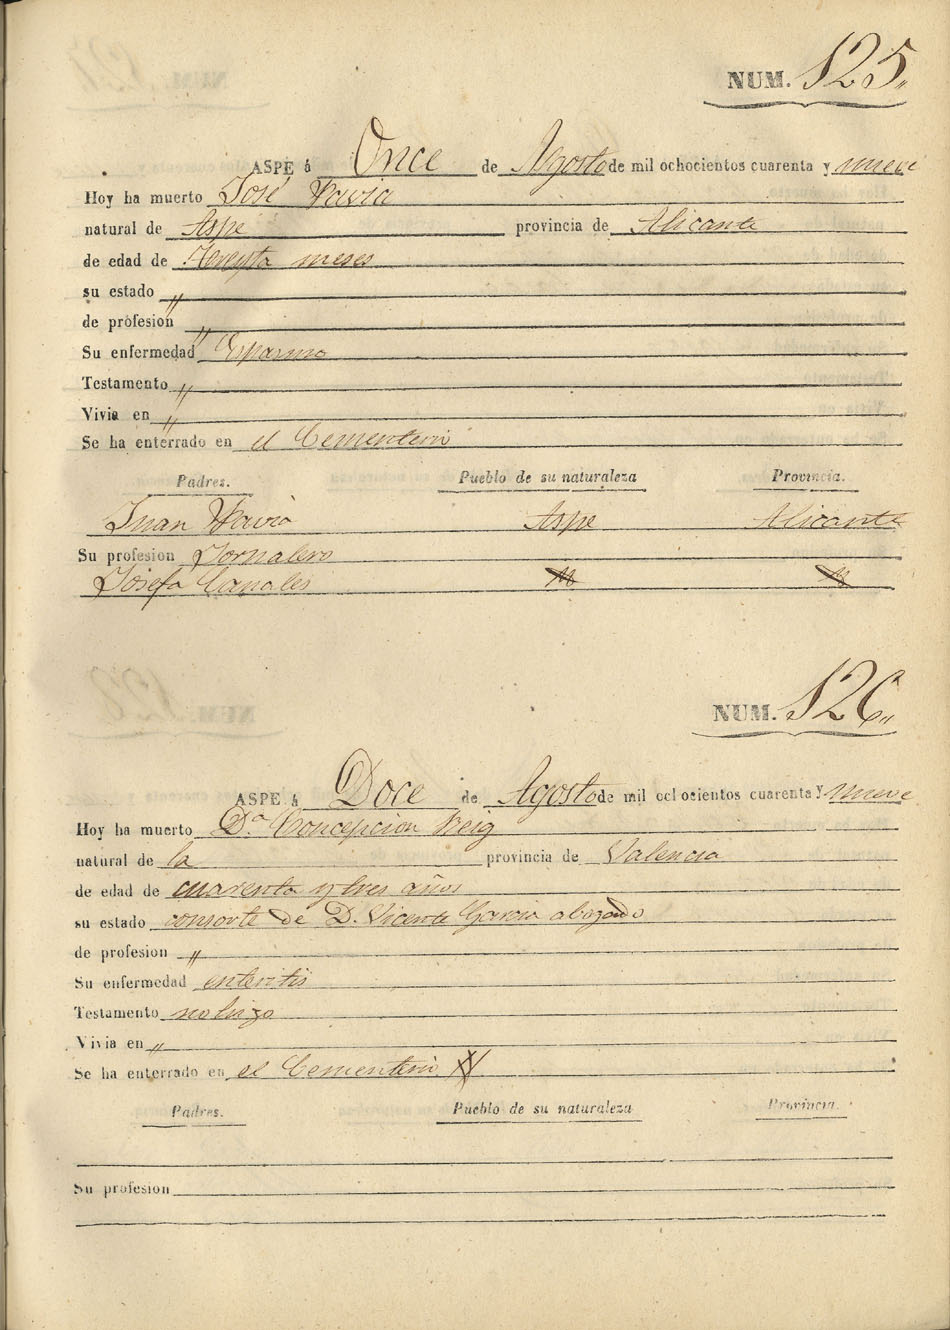 NUM. 125
ASPE á Once de Agosto de mil ochocientos cuarenta y nueve
Hoy ha muerto José Pavia
natural de Aspe provincia de Alicante
de edad de Treynta meses
su estado "
de profesion "
Su enfermedad Espasmo
Testamento "
Vivia en "
Se ha enterrado en el Cementerio
Padres. Pueblo de su naturaleza Provincia.
Juan Pavia Aspe Alicante
Su profesion Jornalero
Josefa Canales
NUM. 126
ASPE á Doce de Agosto de mil ochocientos cuarenta y nueve
Hoy ha muerto D.ª Concepcion Reig
natural de la provincia de Valencia
de edad de cuarenta y tres años
su estado consorte de D. Vicente Garcia abogado
de profesion "
Su enfermedad enteritis
Testamento no hizo
Vivia en "
Se ha enterrado en el Cementerio
Padres. Pueblo de su naturaleza Provincia.
Su profesion